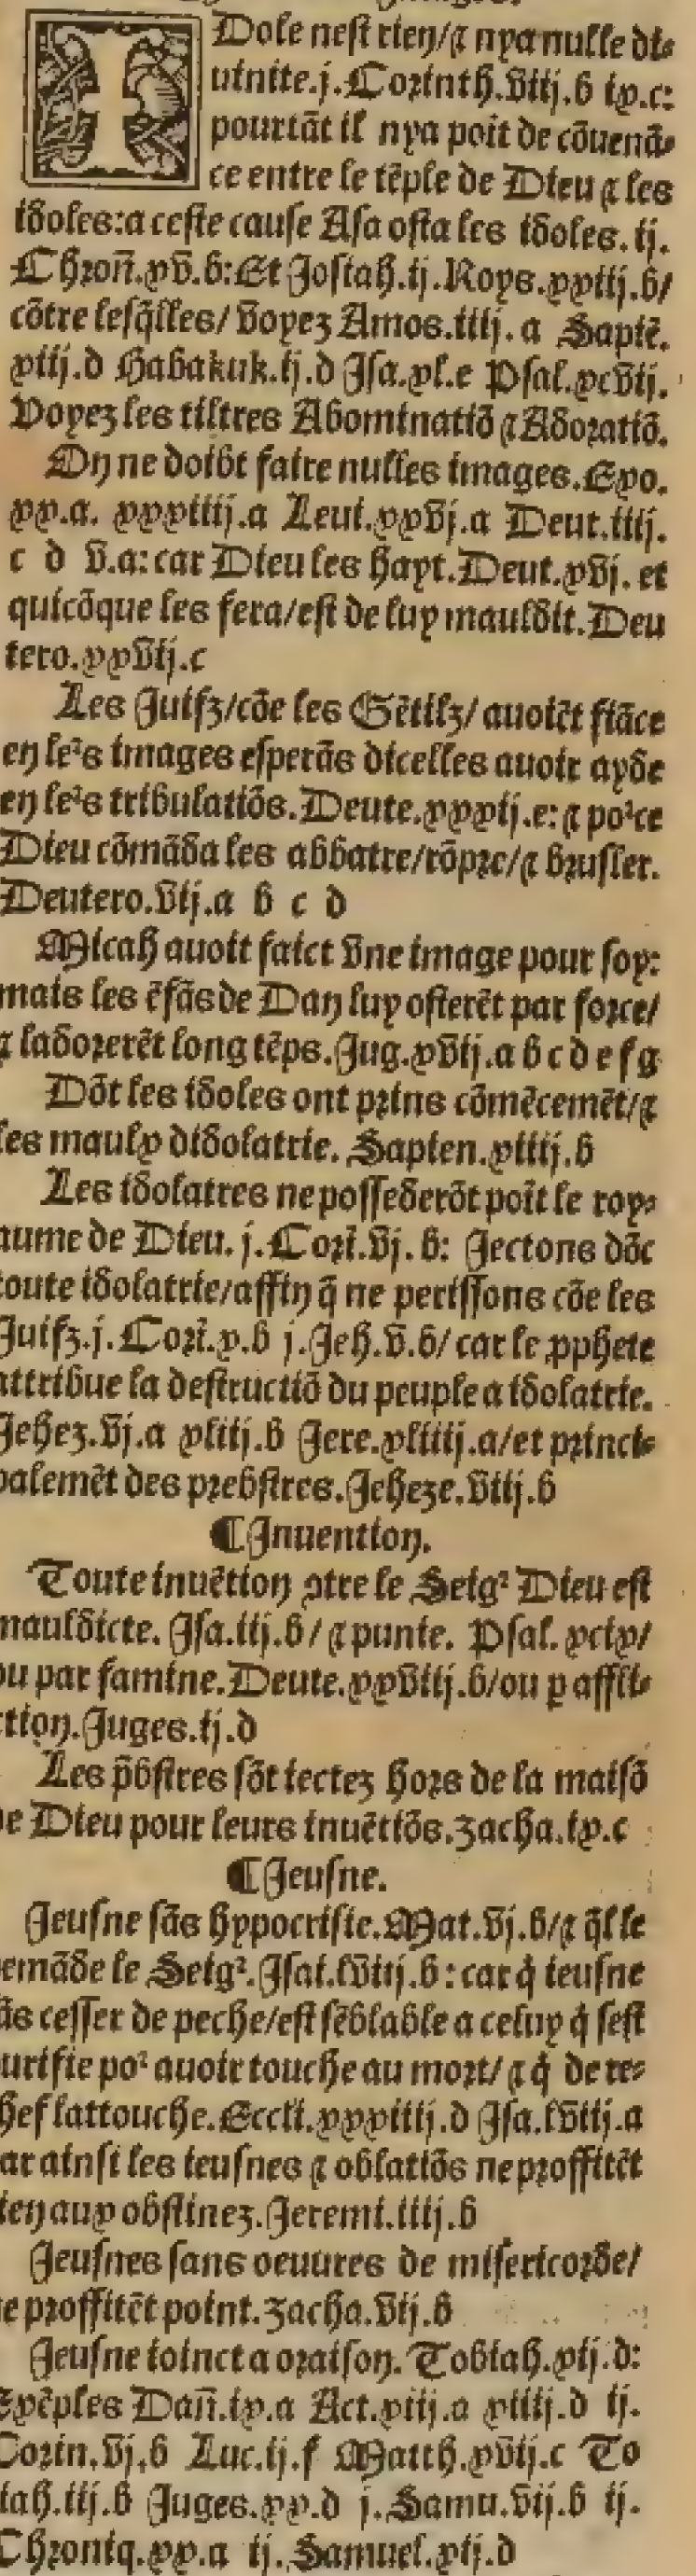 IDole nest rien/⁊ nya nulle di-
uinite.j.Corinth.viij.b ix.c:
pourtāt il nya poīt de cōuenā-
ce entre le tēple de Dieu ⁊ les
idoles:a ceste cause Asa osta les idoles.ij.
Chron̄.xv.b:Et Josiah.ij.Roys.xxiij.b/
cōtre lesq̄lles/voyez Amos.iiij.a Sapiē.
xiij.d Habakuk.ij.d Isa.xl.e Psal.xcvij.
Voyez les tiltres Abominatiō ⁊ Adoratiō.
On ne doibt faire nulles images.Exo.
xx.a. xxxiiij.a Leui.xxvj.a Deut.iiij.
c d v.a:car Dieu les hayt.Deut.xvj. et
quicōque les fera/est de luy mauldit.Deu
tero.xxvij.c
Les Juifz/cōe les Gētilz/auoiēt fiāce
en leꝛs images esperās dicelles auoir ayde
en leꝛs tribulatiōs.Deute.xxxij.e:⁊ poꝛce
Dieu cōmāda les abbatre/rōpre/⁊ brusler.
Deutero.vij.a b c d
Micah auoit faict vne image pour soy:
mais les ēfās de Dan luy osterēt par force/
⁊ ladorerēt long tēps.Jug.xvij.a b c d e f g
Dōt les idoles ont prins cōmēcemēt/⁊
les maulx didolatrie. Sapien.xiiij.b
Les idolatres ne possederōt poīt le roy-
aume de Dieu. j.Corī.vj. b: Jectons dōc
toute idolatrie/affin q̄ ne perissons cōe les
Juifz.j.Corī.x.b j.Jeh.v.b/ car le ꝓphete
attribue la destructiō du peuple a idolatrie.
Jehez.vj.a xliij.b Jere.xliiij.a/et princi-
palemēt des prebstres.Jeheze.viij.b
¶Inuention.
Toute inuētion ꝯtre le Seigꝛ Dieu est
mauldicte. Isa.iij.b/ ⁊ punie. Psal. xcix/
ou par famine.Deute.xxviij.b/ou ꝑ affli-
ction.Juges.ij.d
Les p̄bstres sōt iectez hors de la maisō
de Dieu pour leurs inuētiōs.zacha.ix.c
¶Jeusne.
Jeusne sās hypocrisie.Mat.vj.b/⁊ q̄l le
demāde le Seigꝛ.Isai.lviij.b: car q̇ ieusne
sās cesser de peche/est sēblable a celuy q̇ sest
purifie poꝛ auoir touche au mort/ ⁊ q̇ de re-
chef lattouche.Eccli.xxxiiij.d Isa.lviij.a
car ainsi les ieusnes ⁊ oblatiōs ne proffitēt
rien aux obstinez.Jeremi.iiij.b
Jeusnes sans oeuures de misericorde/
ne proffitēt point.zacha.vij.b
Jeusne ioinct a oraison. Tobiah.xij.d:
Exēples Dan̄.ix.a Act.xiij.a xiiij.d ij.
Corin.vj.b Luc.ij.f Matth.xvij.c To
biah.iij.b Juges.xx.d j.Samu.vij.b ij.
Chroniq.xx.a ij.Samuel.xij.d